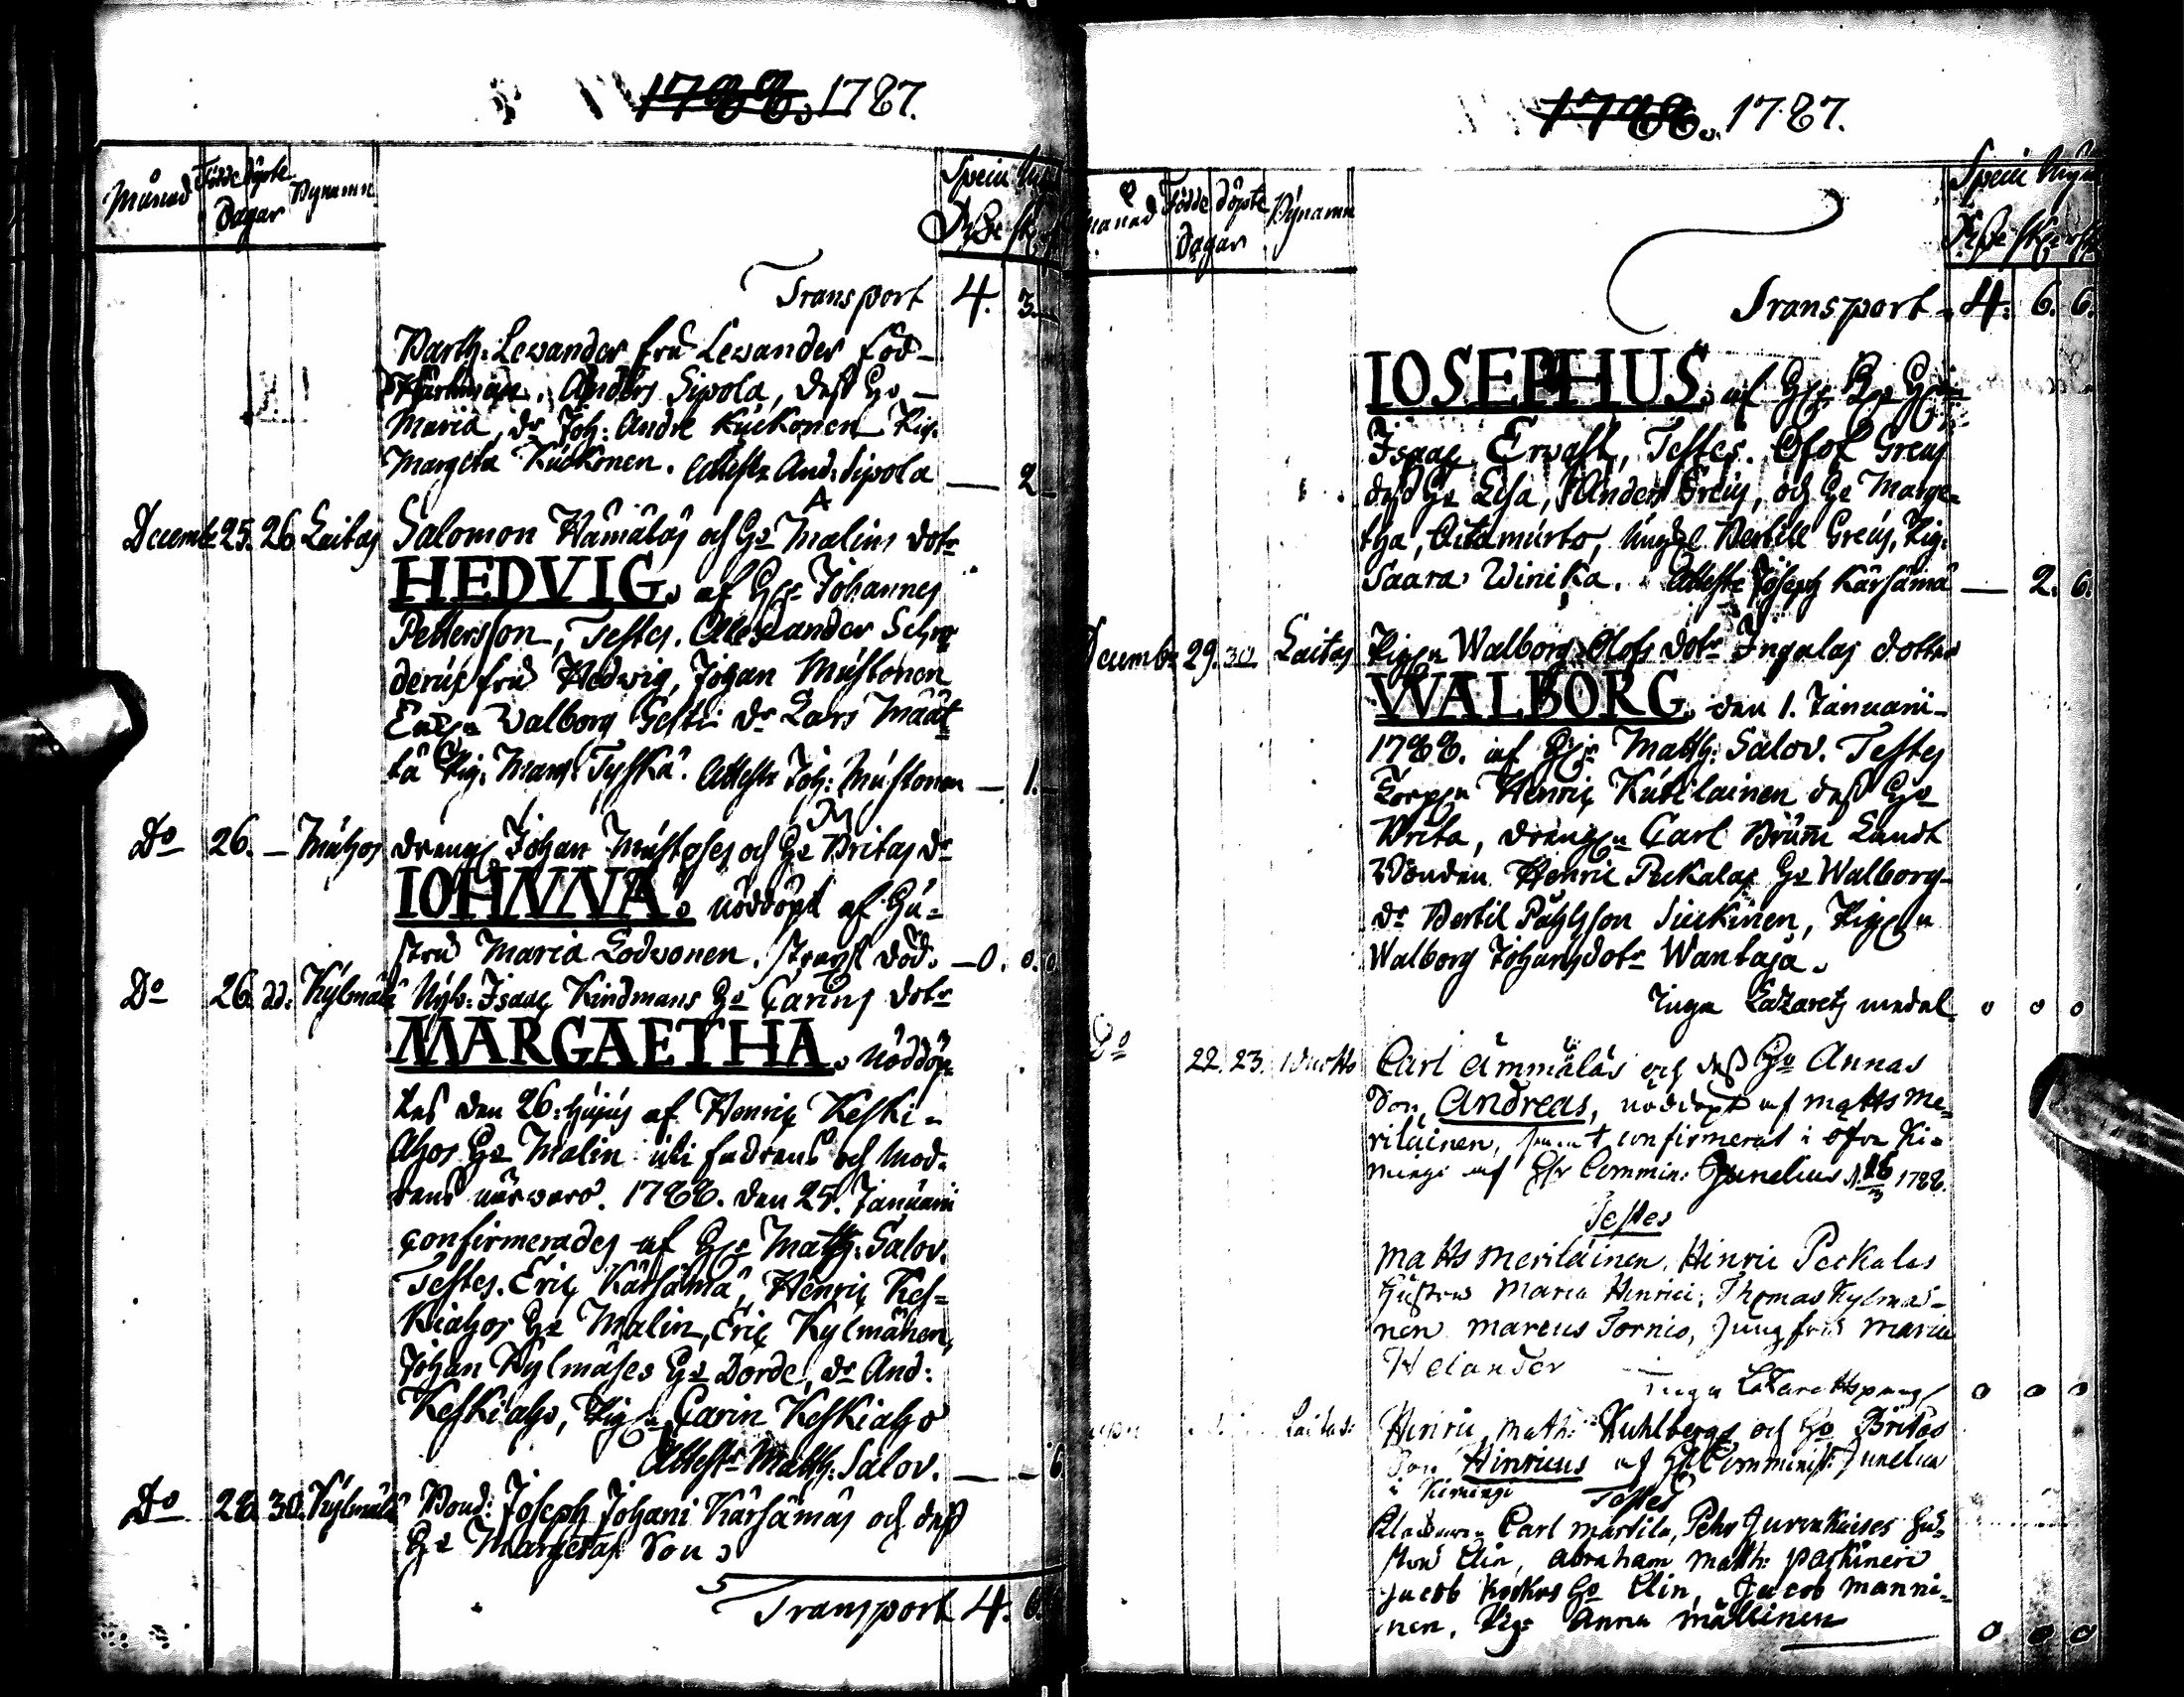 1788. 1787.
Månad Födde Döpte Dagar Bynamn
Transport 4. 3.
Barth: Levander fru Levander född
Anders Sipola, dess Ho
Maria, dr Joh: Andr Kuckonen Pig.
Margeta Kuckonen. Attestr And: Sipola — 2
Decemb 25. 26. Laitas Salomon Hämäläs och Ho Malins dotr
HEDVIG. af Hr Johannes
Pettersson, Testes. Alexander Schro
derus fru Hedvig, Johan Mustonen
Walborg dr Lars Määt
tä Pig. Marg. Tyskä. Attestr Joh: Mustonen — 1.
Do 26. — Muhos dreng Johan Mustoses och Ho Britas dr
IOHNNA. nöddöpt af Hu-
stru Maria Lodvonen. straxt död. — 0. 0. 0
Do 26. dd: Kylmälä Nyb: Isaac Kindmans Ho Carins dotr
MARGAETHA. nöddöp
tes den 26: hujus af Henric Keski-
ahos Ho Malin uti fadrens och mod-
rens närvaro. 1788. den 25. Januarii
confirmerades af Hr Matth: Salov.
Testes. Eric Kärsämä, Henric Kes-
kiahos Ho Malin, Eric Kylmänen,
Johan Kylmäses Ho Borde, dr And:
Keskiaho, Pigan Carin Keskiaho
Attestr Matth: Salov. — 6.
Do 28. 30. Kylmälä Bond: Joseph Johani Kärsämäs och dess
Ho Margetas Son
Transport 4. 6.
1788. 1787.
Månad Födde Döpte Dagar Bynamn
Transport 4. 6. 6.
IOSEPHUS. af
Isaac Ervast, Testes. Olof Greus
dess Ho Lisa, Anders Greus, och Ho Marge-
tha, Aitamurto, Bertill Greus, Pig.
Saara Winika. Attestr Joseph Kärsämä — 2. 6.
Decembr 29. 30. Laitas Pigan Walborg Olofs dotr Ingalas dotter
WALBORG. den 1. Januarii
1788. af Hr Matth: Salov. Testes
Henric Kutilainen dess Ho
Brita, drengen Carl Brumm Landt
Bonden Henric Peckalas Ho Walborg
dr Bertil Påhlsson Suckinen, Pigan
Walborg Johans dotr Wantaja.
Inga Lazarets medel 0 0 0
Do 22. 23. Carl Ämmäläs och dess Ho Annas
Son, Andreas, nöddopt af Matts Me-
riläinen, confirmerat i öfre Ki-
mingi af Hr Commin: Junelius d. 16 1788.
Testes
Matts Meriläinen, Hinric Peckalas
Hustru Maria Hinrici, Thomas Kylmä-
nen Marcus Tornio, Jungfru Maria
Helander
Inga Lazarettspengr 0 0 0
Laitas: Hinric Math: Kuhlbergs och Ho Britas
Son Hinricus af Hr Comminist: Junelius
i Kimingi Testes
Carl Martila, Pehr Juvakaises Hu-
stru Elin, Abraham Math: Paskinen
Jacob Ho Elin, Jacob Manni-
nen, Pig: Anna Mällinen 0 0 0